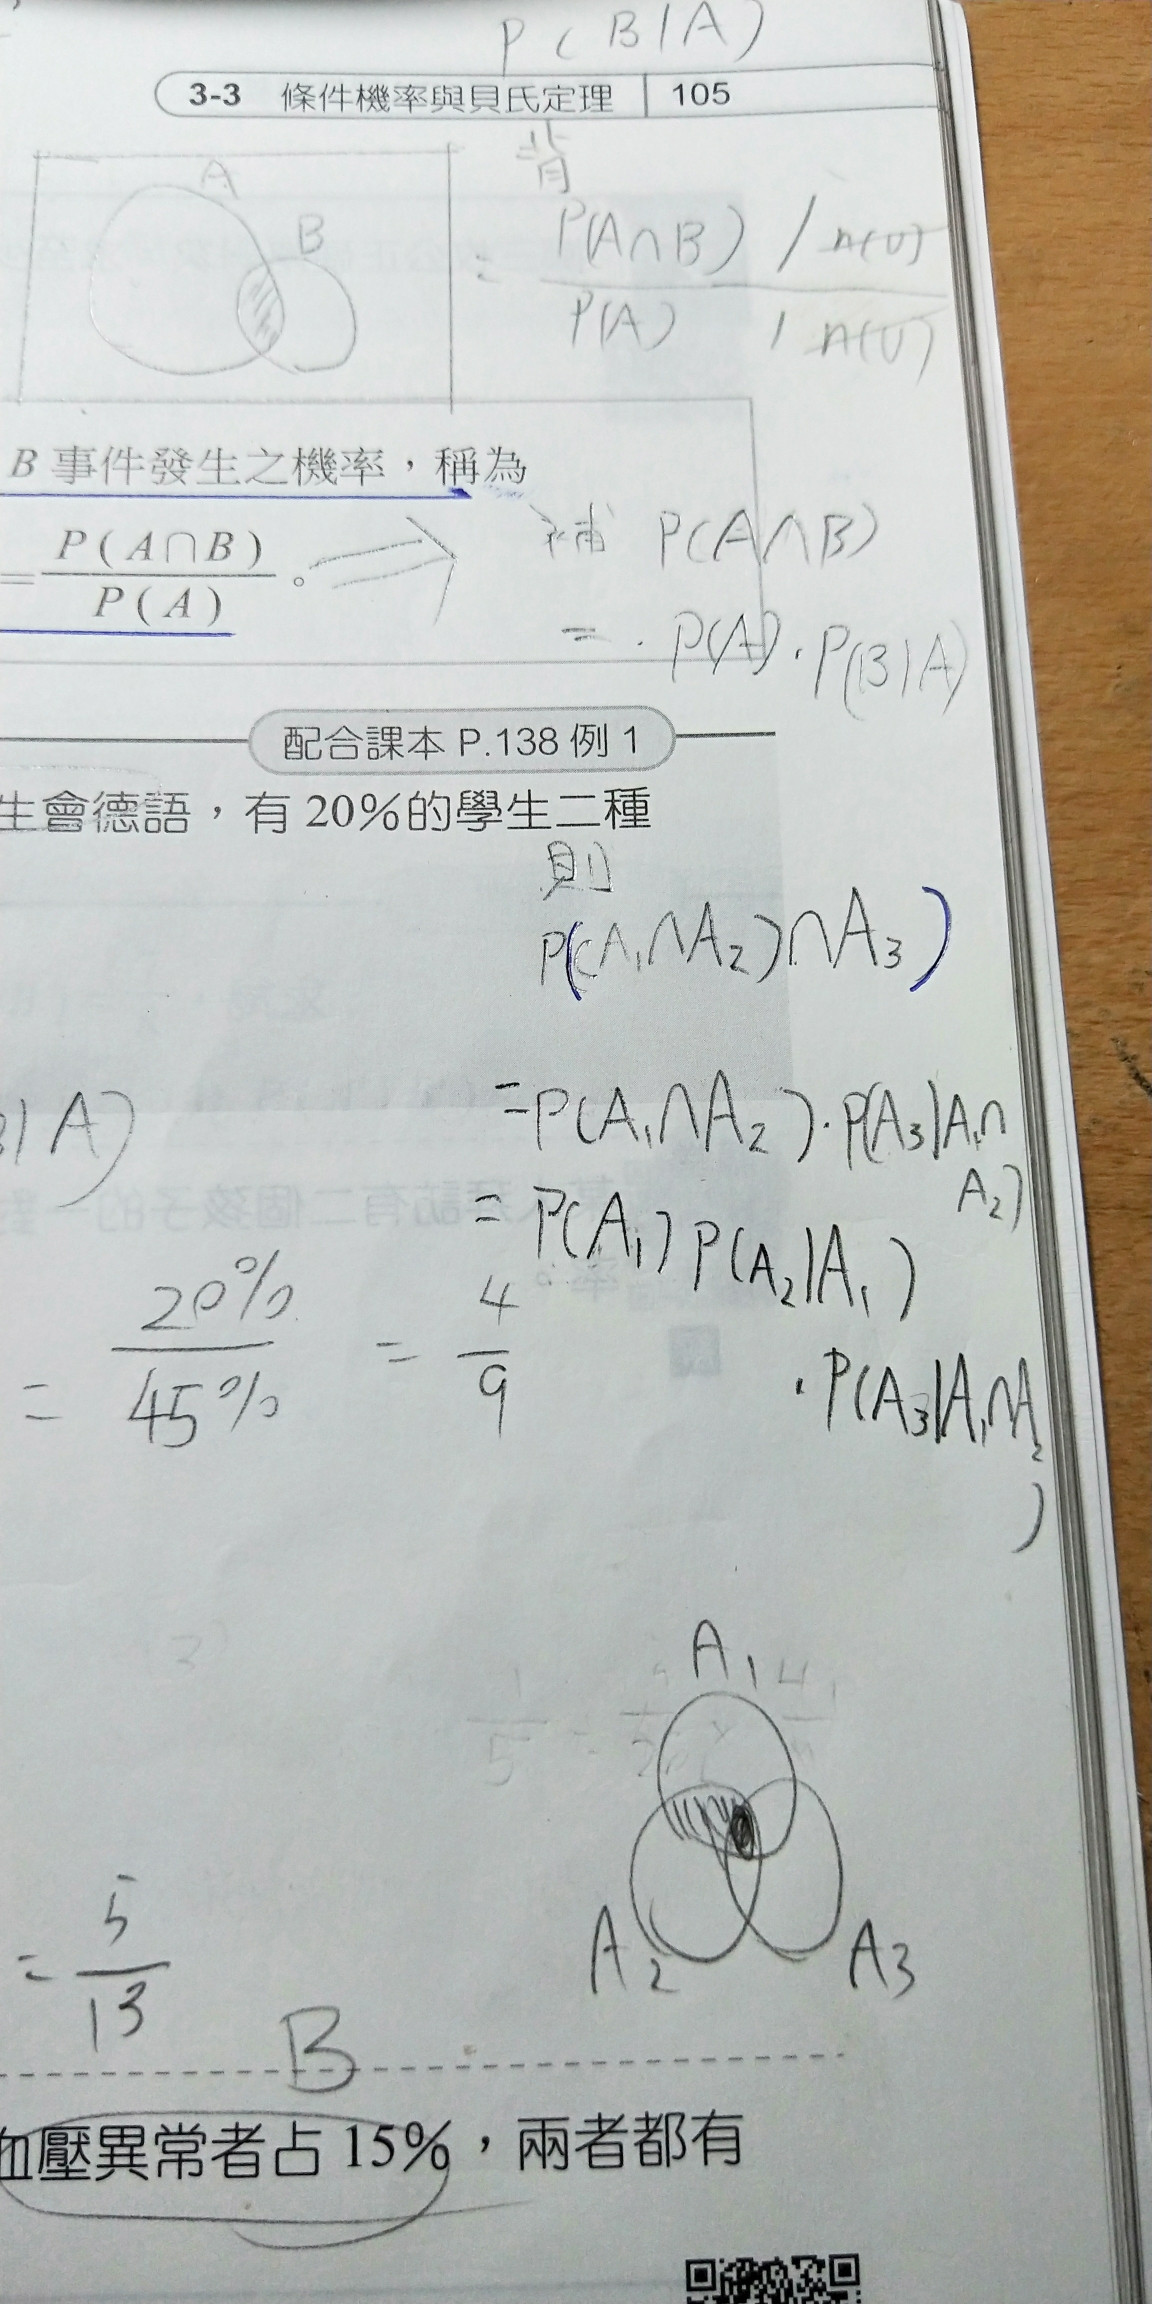 P(B|A)
3-3 條件機率與貝氏定理 105
背
A
B
= P(A∩B) / n(U)
P(A) / n(U)
B 事件發生之機率，稱為
= P(A∩B)
P(A) 。
補 P(A∩B)
= P(A)·P(B|A)
配合課本 P.138 例 1
生會德語，有 20%的學生二種
則
P((A₁∩A₂)∩A₃)
|A)
=P(A₁∩A₂)·P(A₃|A₁∩
A₂)
= P(A₁) P(A₂|A₁)
·P(A₃|A₁∩A₂
)
= 20%
45%
= 4
9
A₁
A₂
A₃
= 5
13
B
血壓異常者占 15%，兩者都有